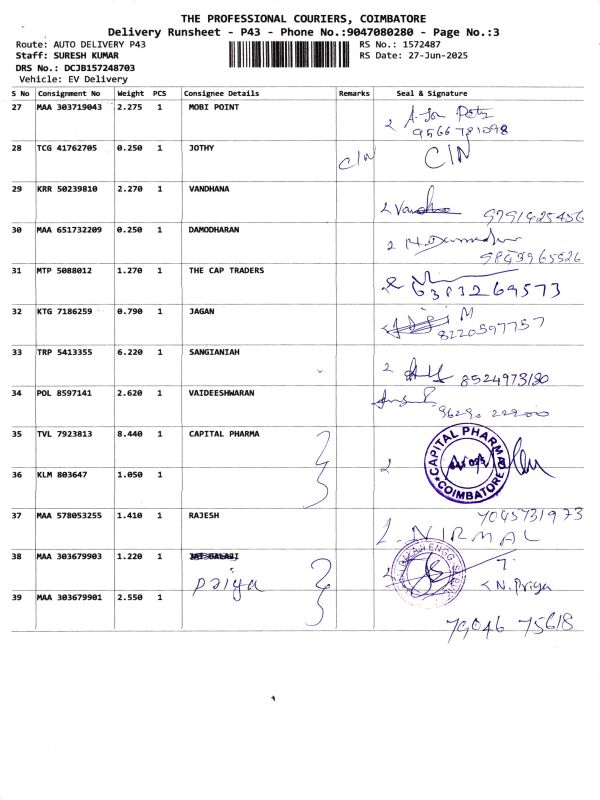 THE PROFESSIONAL COURIERS, COIMBATORE
Delivery Runsheet - P43 - Phone No.:9047080280 - Page No.:3
Route: AUTO DELIVERY P43 RS No.: 1572487
Staff: SURESH KUMAR RS Date: 27-Jun-2025
DRS No.: DCJB157248703
Vehicle: EV Delivery
S No Consignment No Weight PCS Consignee Details Remarks Seal & Signature
27 MAA 303719043 2.275 1 MOBI POINT
9566781098
28 TCG 41762705 0.250 1 JOTHY C/N C/N
29 KRR 50239810 2.270 1 VANDHANA
9791425456
30 MAA 651732209 0.250 1 DAMODHARAN
9843965526
31 MTP 5088012 1.270 1 THE CAP TRADERS
6383269573
32 KTG 7186259 0.790 1 JAGAN
8220597757
33 TRP 5413355 6.220 1 SANGIANIAH
8524973180
34 POL 8597141 2.620 1 VAIDEESHWARAN
96290 22900
35 TVL 7923813 8.440 1 CAPITAL PHARMA
CAPITAL PHARMA
COIMBATORE
36 KLM 803647 1.050 1
37 MAA 578053255 1.410 1 RAJESH 7045731973
NIRMAL
38 MAA 303679903 1.220 1
Priya N. Priya
39 MAA 303679901 2.550 1
79046 75618